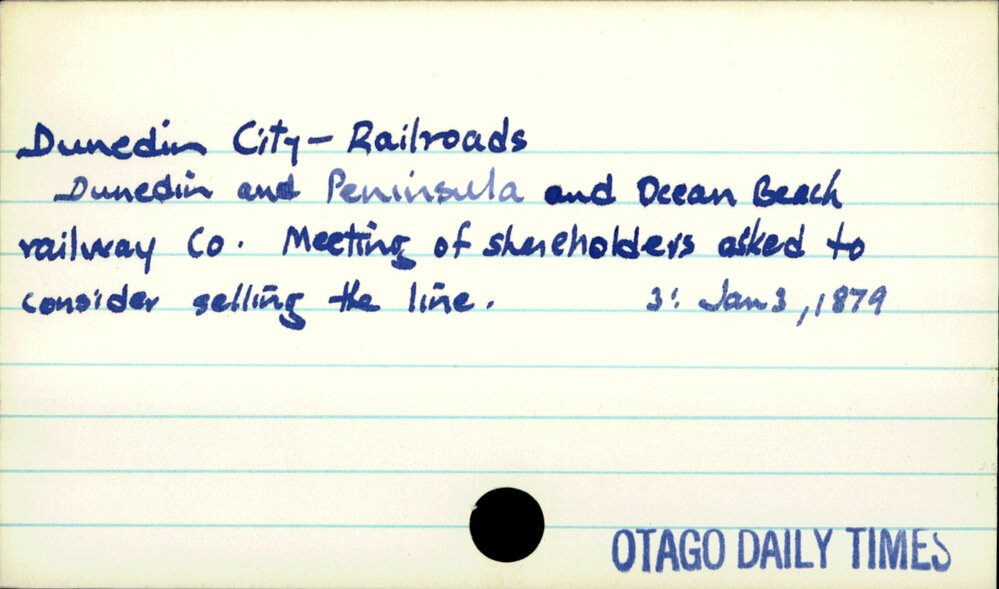 Dunedin City - Railroads
Dunedin and Peninsula and Ocean Beach
railway Co. Meeting of shareholders asked to
consider selling the line. 3: Jan 3, 1879
OTAGO DAILY TIMES